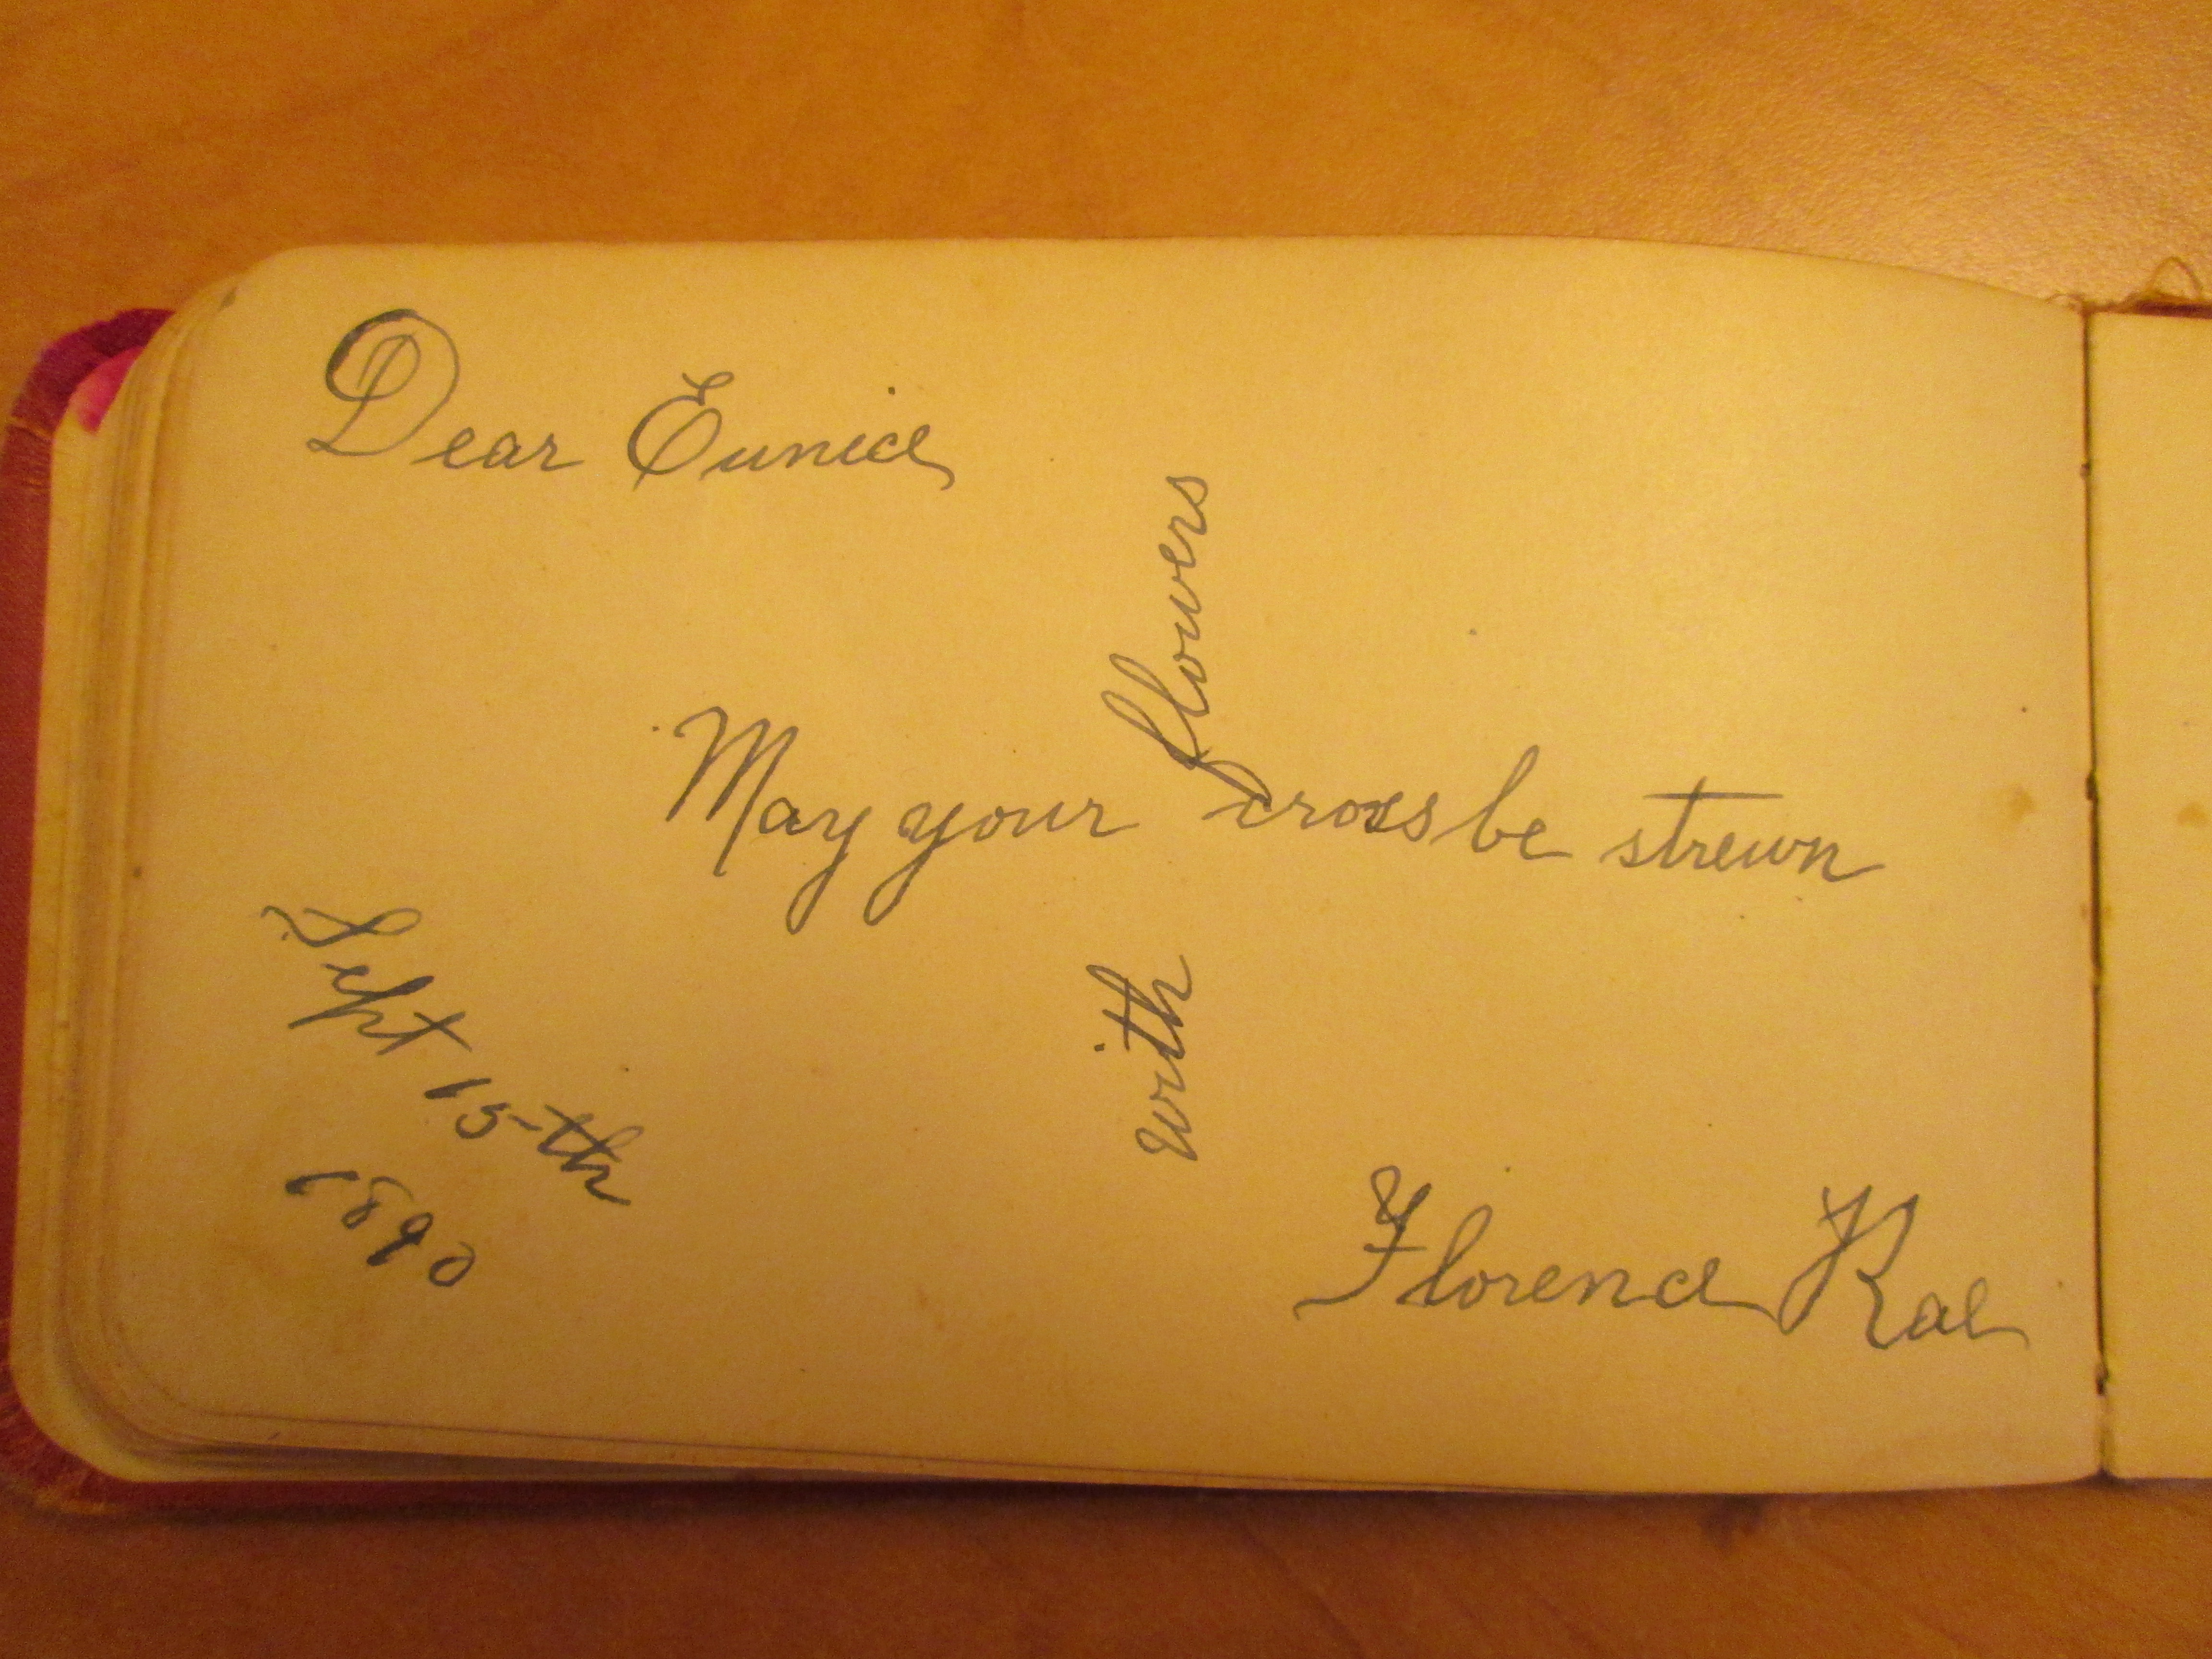 Dear Eunice
May your cross be strewn
with flowers
Sept 15th
1890
Florence Rae